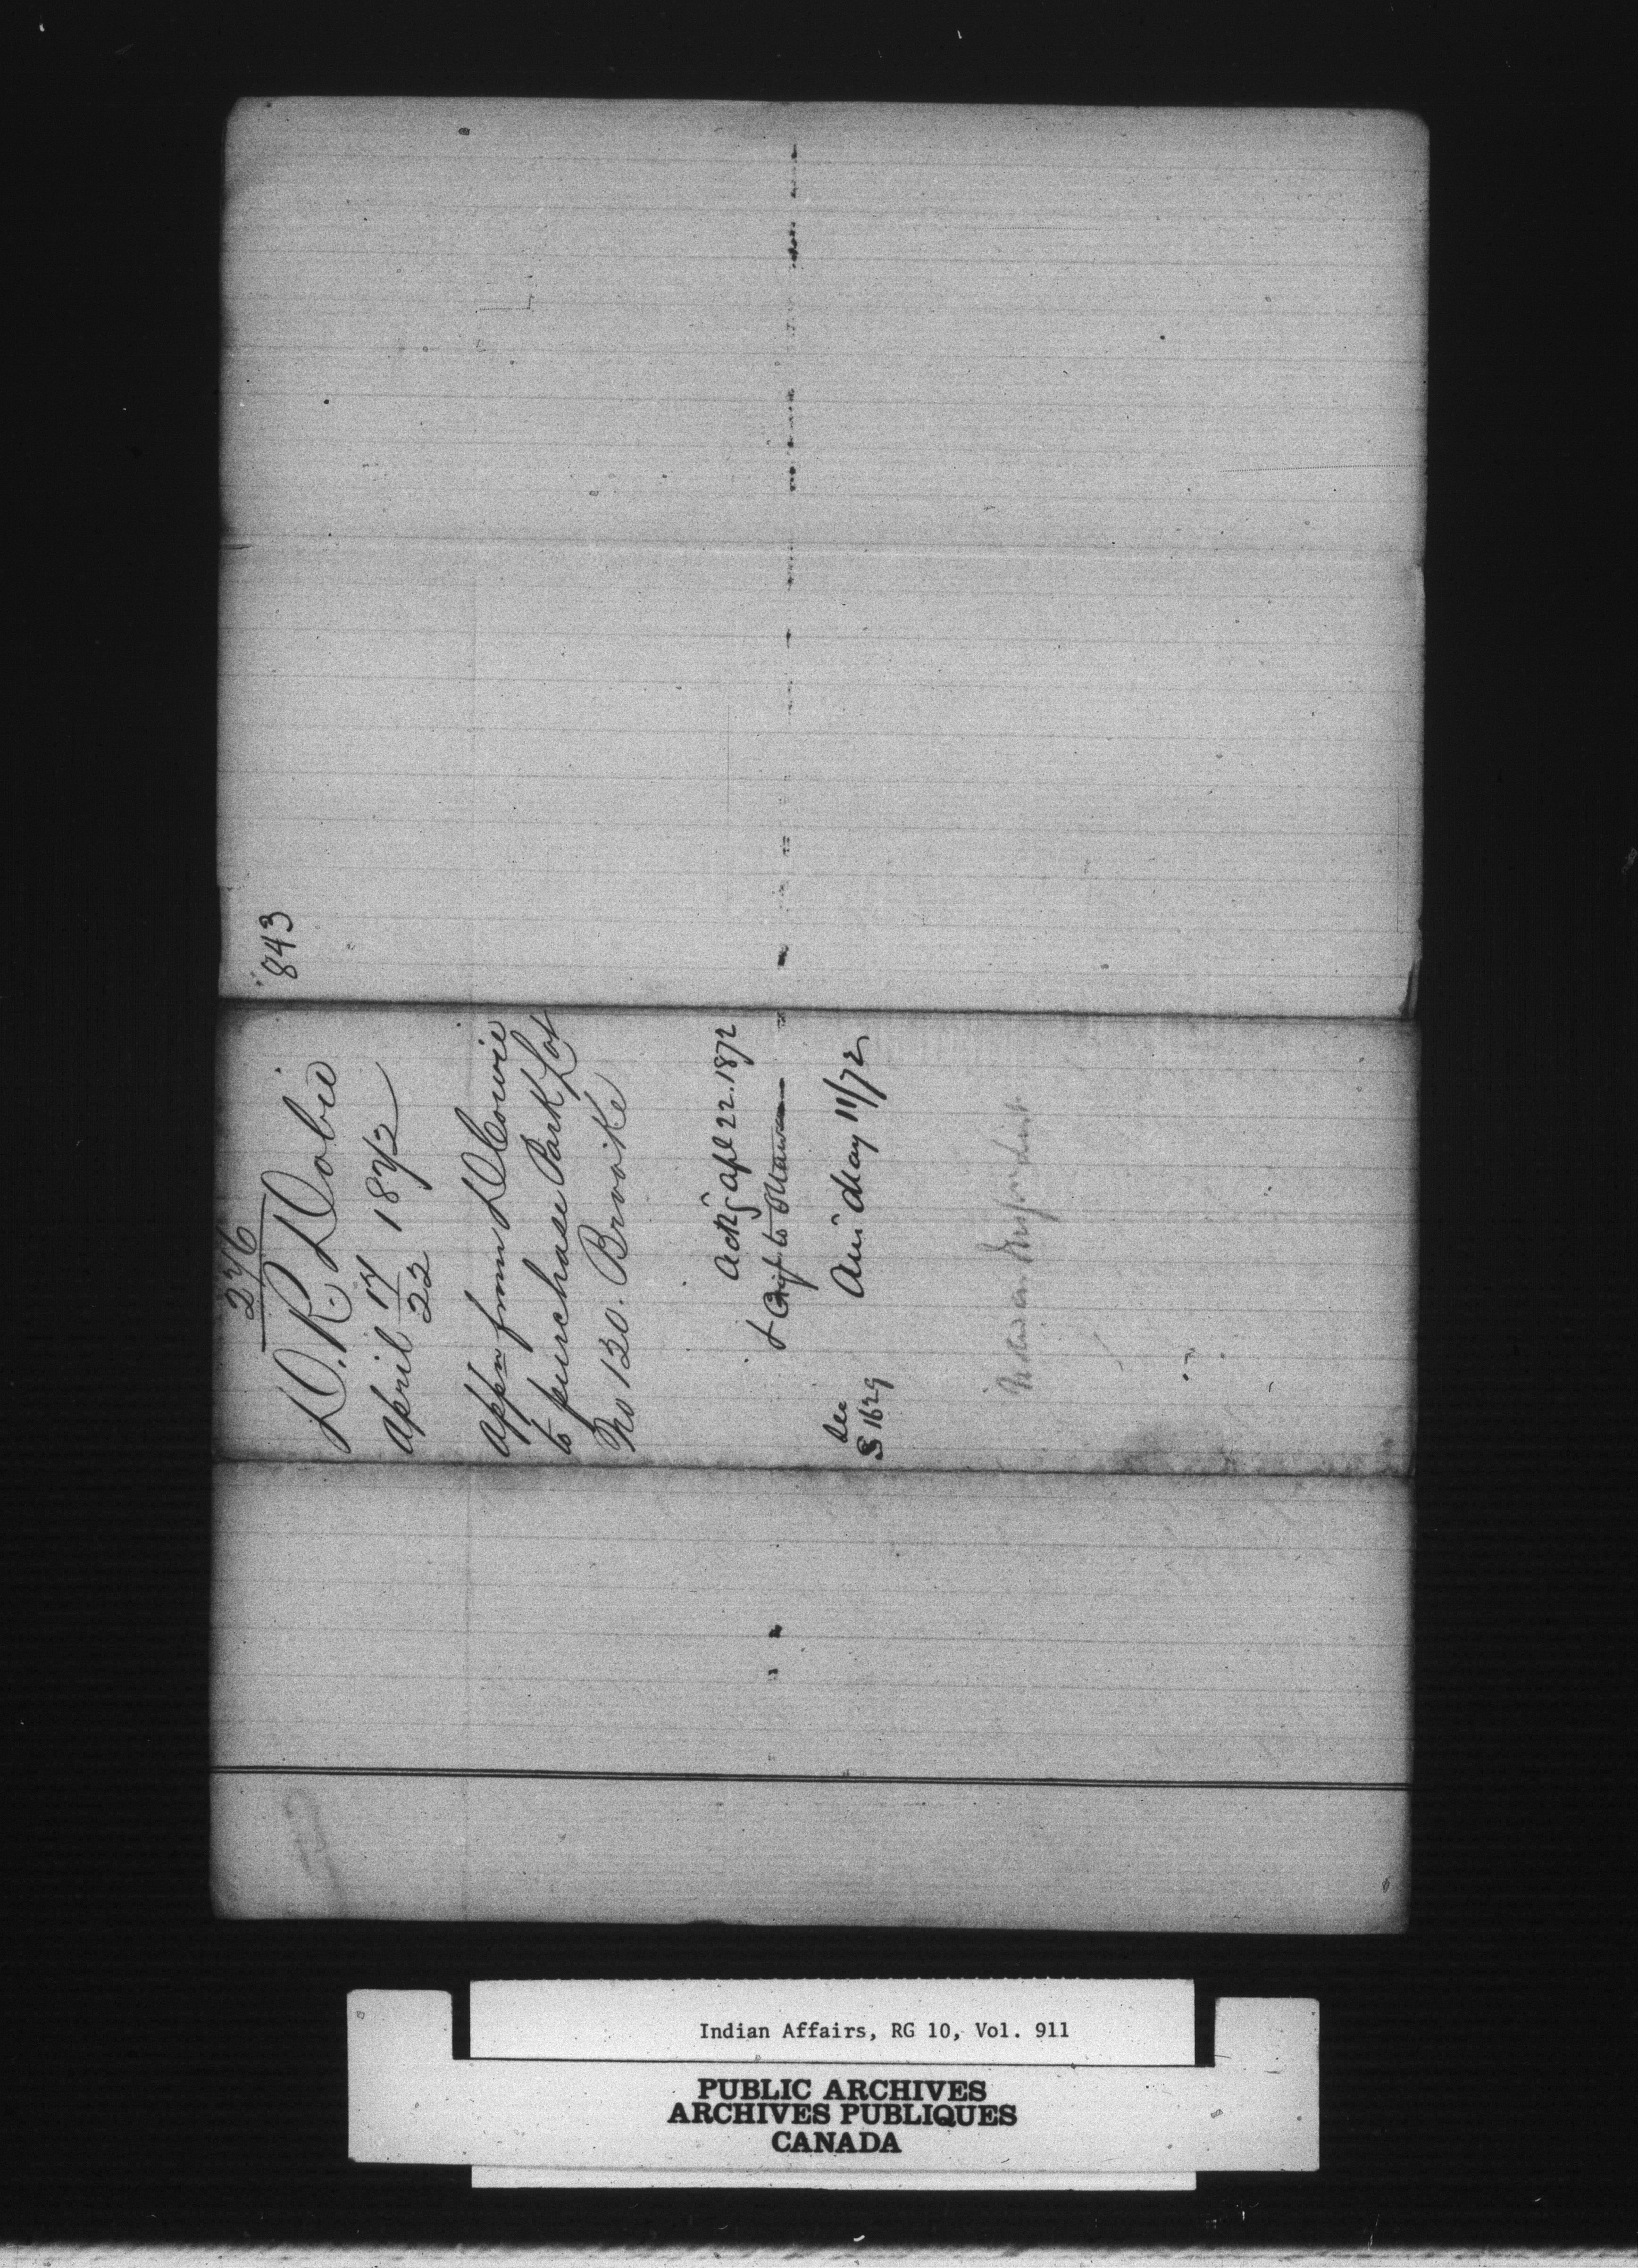 843
276
D. R. Dobie
April 17/22 1872
Appn from D Cowie
to purchase Park Lot
No 130. Brooke
Ackg Apl 22. 1872
& to Ottawa
Ans May 11/72
See
S 1629
Indian Affairs, RG 10, Vol. 911
PUBLIC ARCHIVES
ARCHIVES PUBLIQUES
CANADA